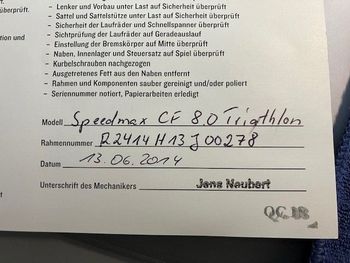 überprüft.
– Lenker und Vorbau unter Last auf Sicherheit überprüft
– Sattel und Sattelstütze unter Last auf Sicherheit überprüft
– Sicherheit der Laufräder und Schnellspanner überprüft
– Sichtprüfung der Laufräder auf Geradeauslauf
– Einstellung der Bremskörper auf Mitte überprüft
– Naben, Innenlager und Steuersatz auf Spiel überprüft
– Kurbelschrauben nachgezogen
– Ausgetretenes Fett aus den Naben entfernt
– Rahmen und Komponenten sauber gereinigt und/oder poliert
– Seriennummer notiert, Papierarbeiten erledigt
Modell Speedmax CF 8.0 Triathlon
Rahmennummer R2414H13J00278
Datum 13.06.2014
Unterschrift des Mechanikers Jens Neubert
QC.18